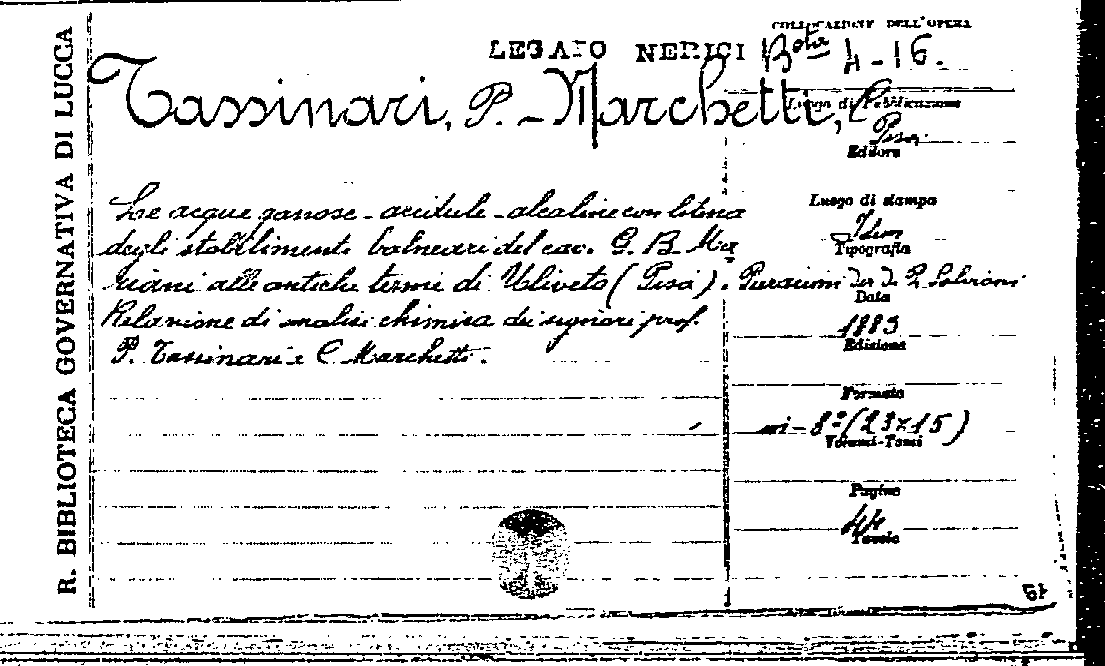 R. BIBLIOTECA GOVERNATIVA DI LUCCA
LEGATO NERICI
COLLOCAZIONE DELL'OPERA
Bota 4-16.
Tassinari, P. - Marchetti, C
Luogo di Pubblicazione
Pisa
Editore
Le acque gassose - acidule - alcaline con litina
degli stabilimenti balneari del cav. G. B. Ma
riani alle antiche termi di Uliveto (Pisa).
Relazione di analisi chimica dei signori prof.
P. Tassinari e C Marchetti.
Luogo di stampa
Idem
Tipografia
di P. Salvioni
Data
1883
Edizione
Formato
in-8º (23x15)
Volumi-Tomi
Pagine
44
Tavole